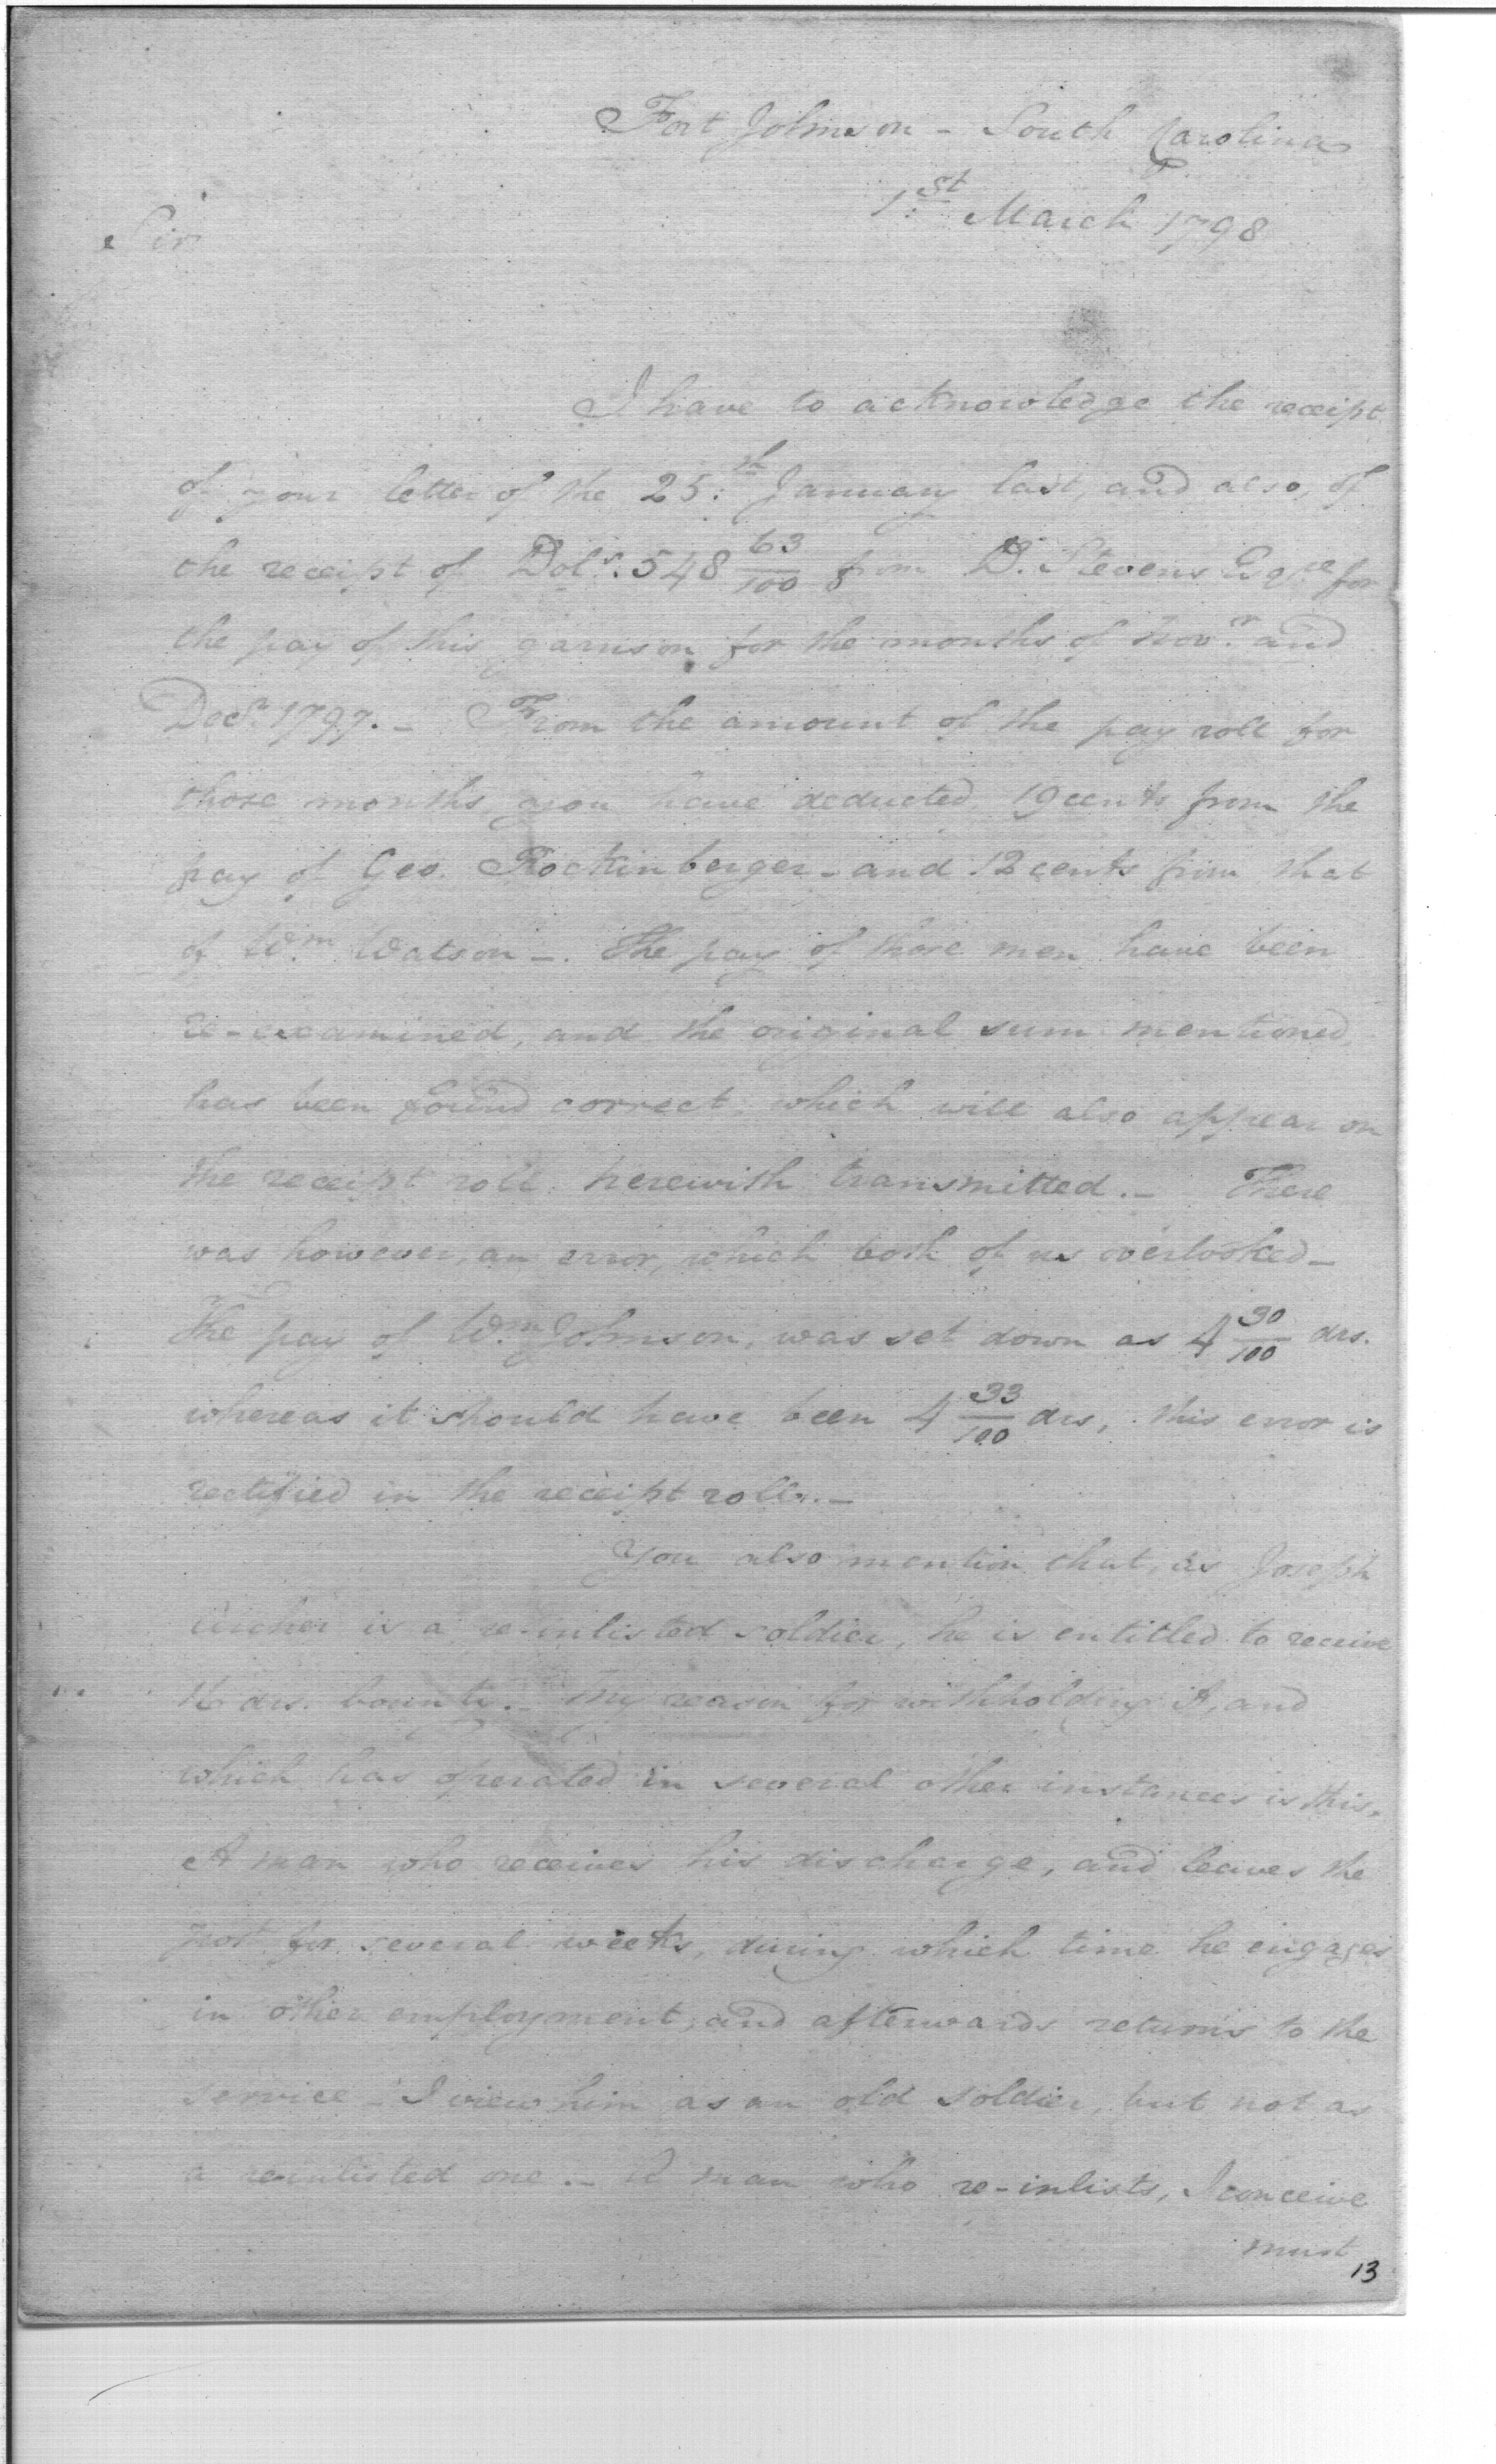 Fort Johnson - South Carolina
1st March 1798
Sir
I have to acknowledge the receipt
of your letter of the 25th January last, and also, of
the receipt of Dols. 548 63/100 from D. Stevens Esqre for
the pay of this garrison for the months of Novr. and
Decr. 1797. - From the amount of the pay roll for
those months, you have deducted, 19 cents from the
pay of Geo. Rockinberger - and 12 cents from that
of Wm. Watson -. The pay of those men have been
re-examined, and the original sum mentioned,
has been found correct, which will also appear on
the receipt roll herewith transmitted. - There
was however an error, which both of us overlooked -
The pay of Wm. Johnson, was set down as 4 30/100 drs.
whereas it should have been 4 33/100 drs, this error is
rectified in the receipt rolls. -
You also mention that, as Joseph
is a re-inlisted soldier, he is entitled to receive
16 drs. bounty. - My reason for withholding it, and
which has operated in several other instances is this,
A man who receives his discharge, and leaves the
post for several weeks, during which time he engages
in other employment, and afterwards returns to the
service - I view him as an old soldier, but not as
a re-inlisted one. - A man who re-inlists, I conceive
must
13